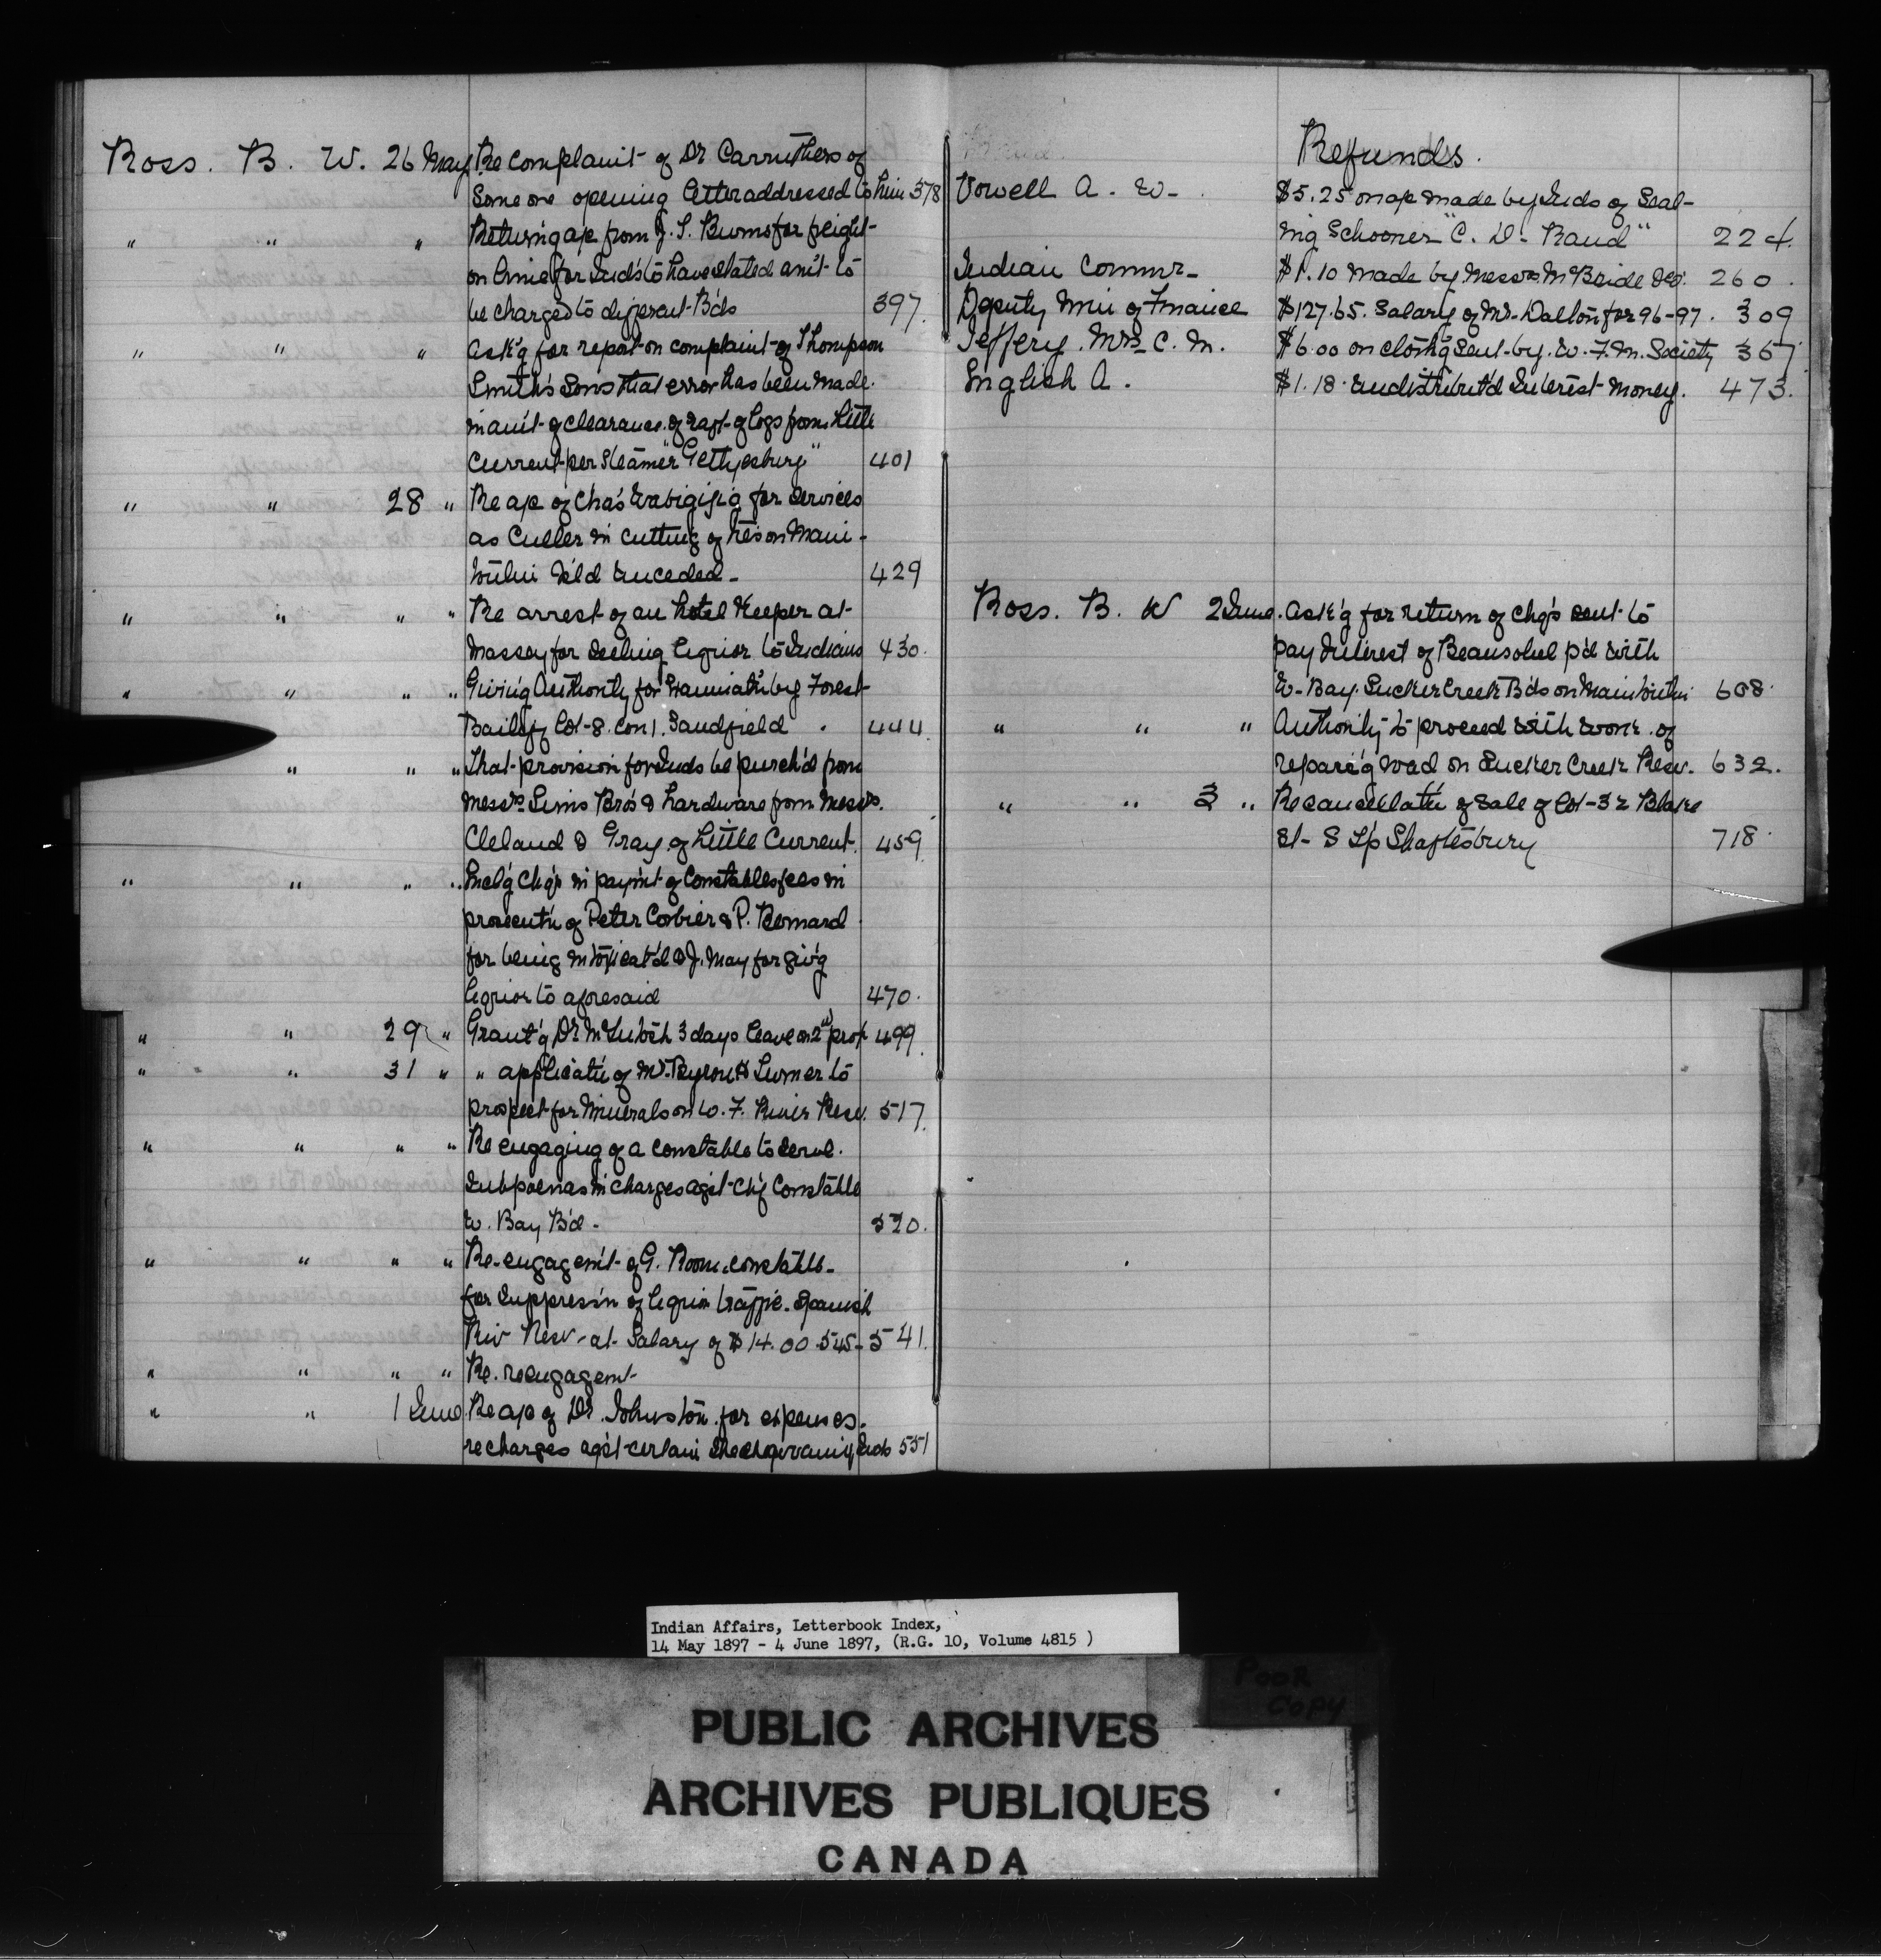 Ross. B. W. 26 May Re complaint of Dr Carruthers of
Some one opening letter addressed to him 378
" " " Return'g a/c from J. S. Burns for freight
on for Ind's to have stated am't to
be charged to different B'ds 397.
" " " Ask'g for report on complaint of Thompson
Smith's Sons that error has been made
in am't of clearance of raft of logs from Little
Current per Steamer "Gettysburg" 401
" " 28 " Re a/c of Cha's for services
as Culler in cutting of ties on Mani-
toulin Is'ld Unceded - 429
" " " " Re arrest of an hotel Keeper at
Massey for selling liquor to Indians 430.
" " " " Giving Authority for by Forest
Bailiff Lot 8. Con 1. Sandfield . 444.
" " " That provision for Inds be purch'd from
Messrs Sims Bro's & hardware from Messrs.
Cleland & Gray of Little Current. 459.
" " " " Incl'g Ch'q's in paym't of Constables fees in
prosecut'n of Peter Corbier & P. Bernard
for being intoxicat'd & J. May for giv'g
liquor to aforesaid 470.
" " 29 " Grant'g Dr McIntosh 3 days leave on 2nd prop 499.
" " 31 " " applicat'n of Mr. Byron H Turner to
prospect for Minerals on W. F. River Resv. 517.
" " " " Re engaging of a constable to serve.
Subpoenas in charges ag'st Ch'f Constable
W. Bay B'd - 520.
" " " " Re-engagem't of G. Room. constable -
for suppress'n of liquor traffic. Spanish
Riv Resv - at Salary of $14.00 545 - 541.
" " " " Re. reengagem't
" " 1 June Re a/c of Dr. Johnston for expenses.
re charges ag'st certain Sheshegwaning Inds 551
Refunds.
Vowell A. W. $5.25 on a/c made by Inds of Seal-
ing Schooner "C. D. Rand" 224.
Indian Commr - $1.10 made by Messrs McBride &Co. 260.
Deputy Min of Finance $127.65. Salary of Mr. Dalton for 96-97. 309
Jeffery. Mrs. C. M. $6.00 on cloth'g sent by. W. F. M. Society 367
English A. $1.18 undistribut'd Interest money. 473.
Ross. B. W 2 June. Ask'g for return of chq's sent to
pay Interest of Beausoliel p'd with
W. Bay. Sucker Creek B'ds on Manitoulin 608.
" " " Authority to proceed with work of
repair'g road on Sucker Creek Resv. 632.
" " 3 " Re cancellat'n of Sale of Lot 32 Blake
St - S T/p Shaftesbury 718
Indian Affairs, Letterbook Index,
14 May 1897 - 4 June 1897, (R.G. 10, Volume 4815 )
POOR
COPY
PUBLIC ARCHIVES
ARCHIVES PUBLIQUES
CANADA